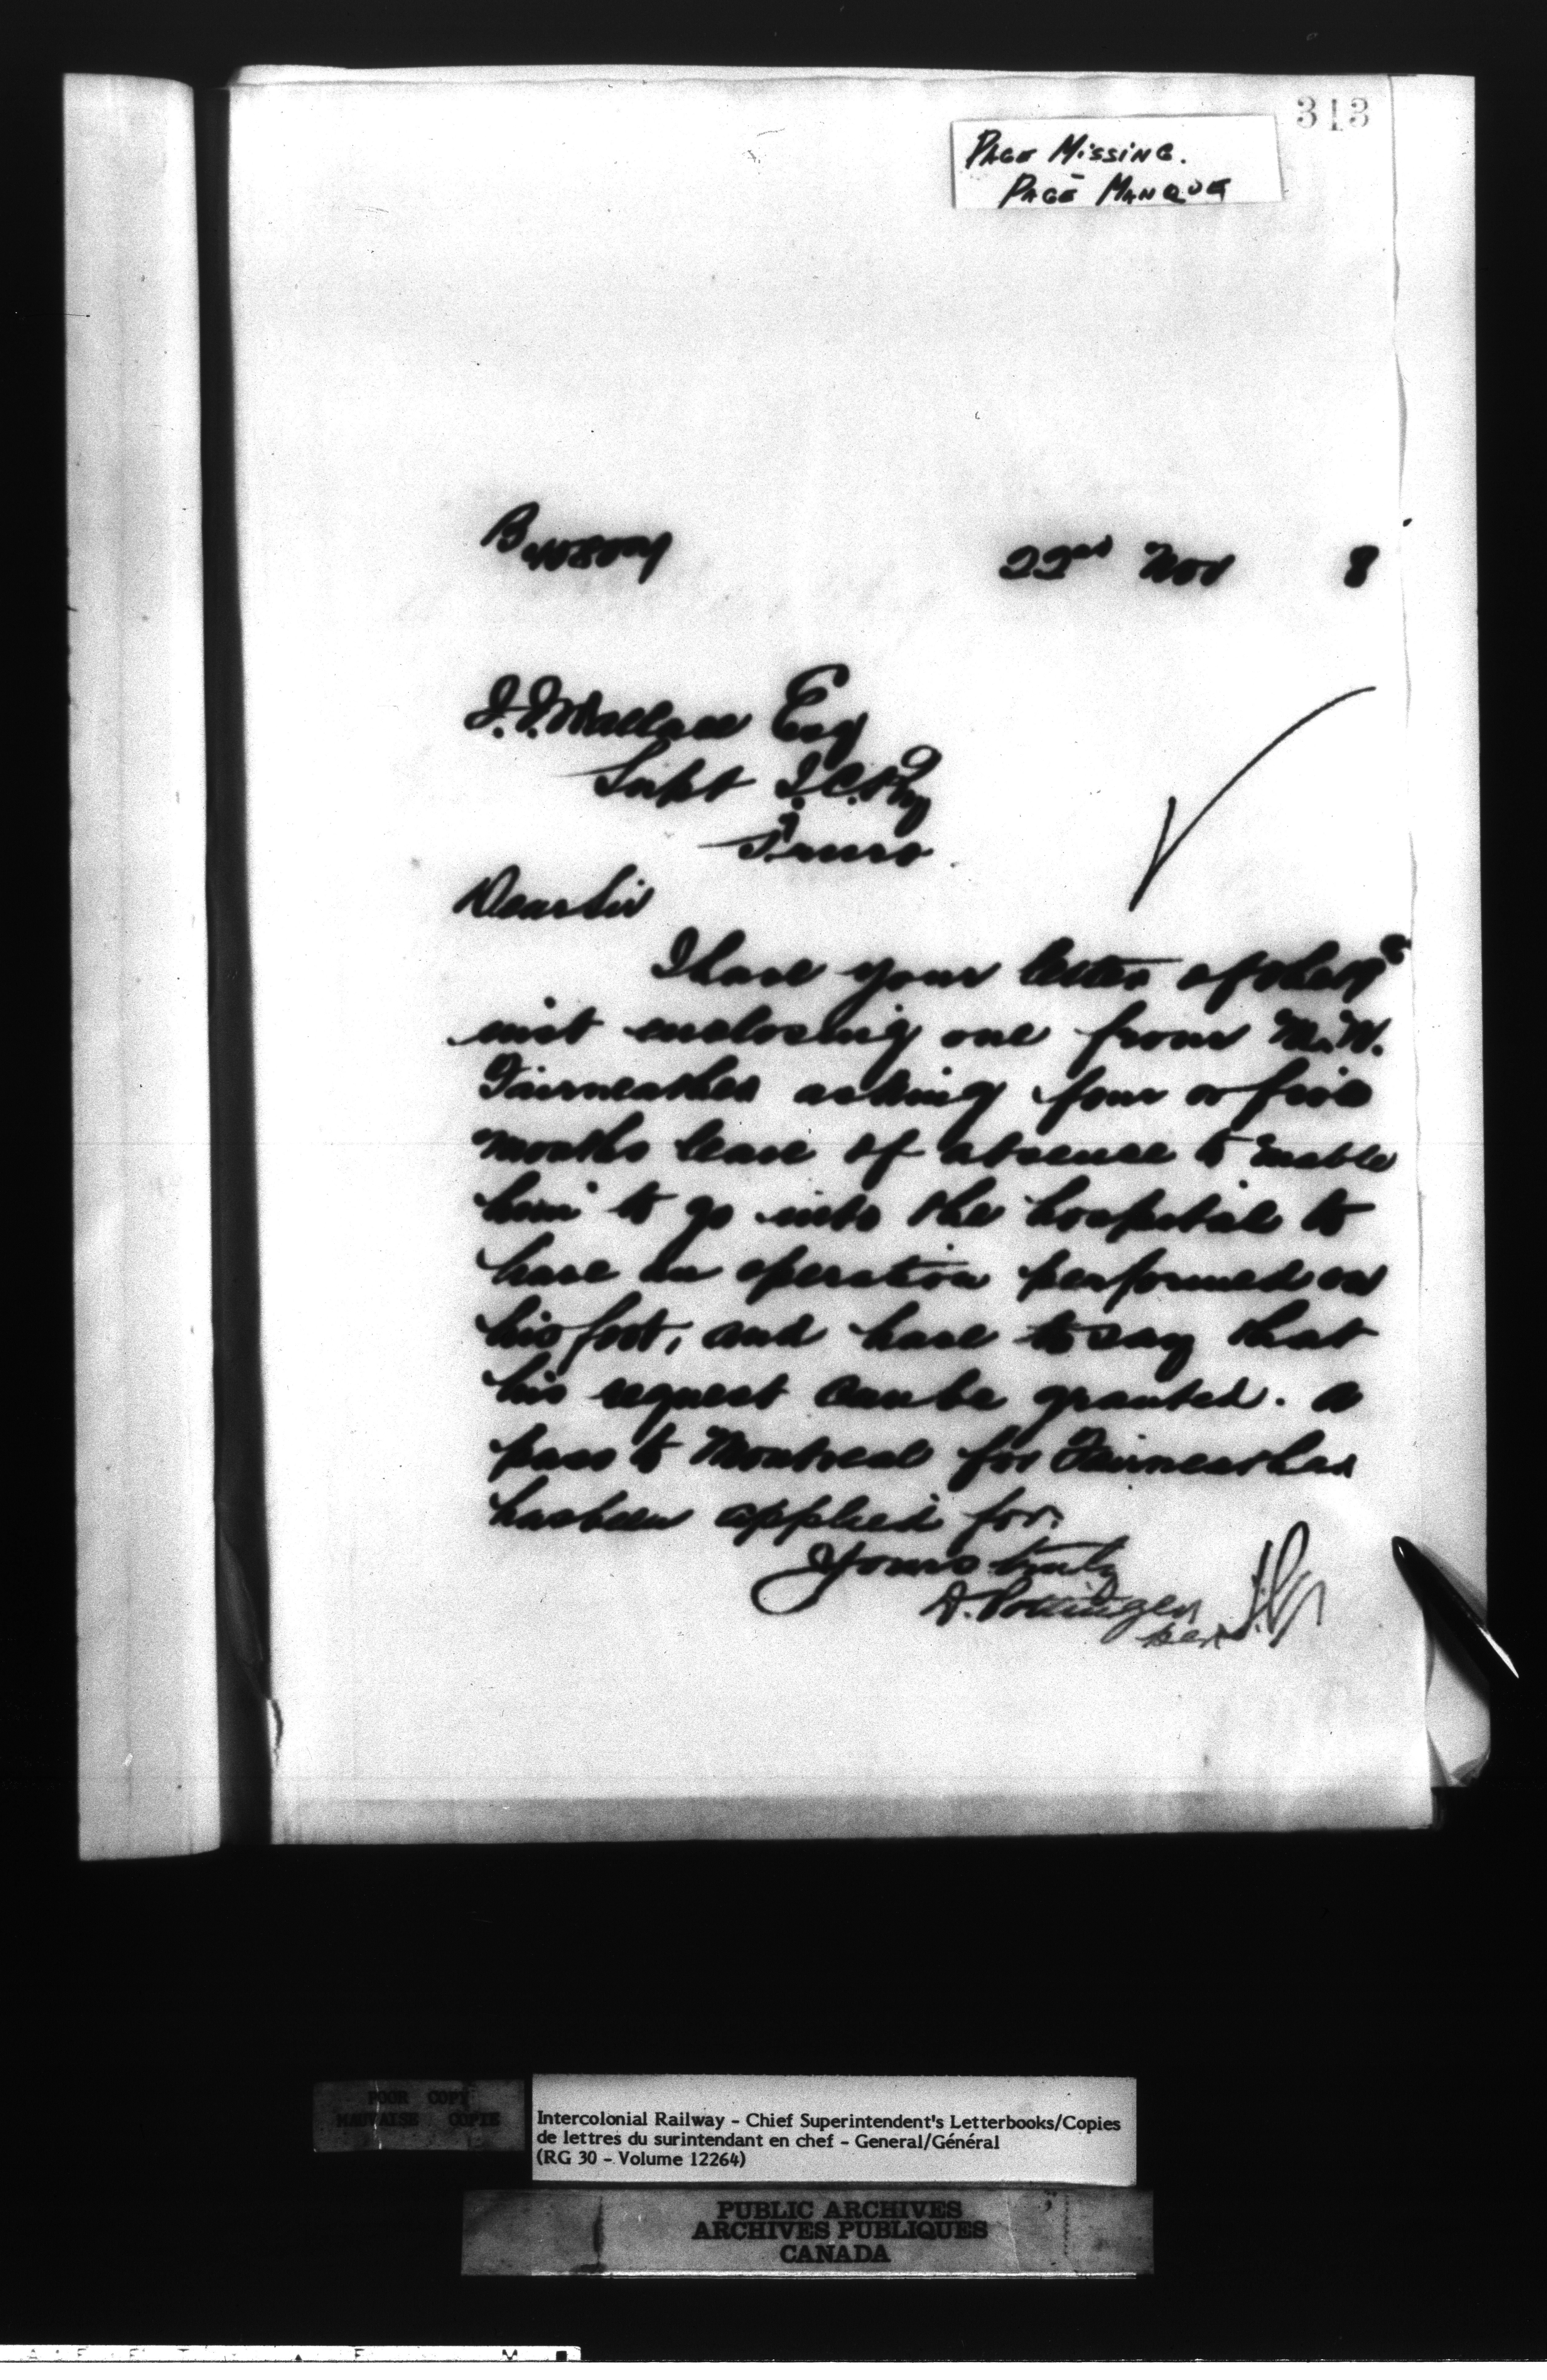 313
PAGE MISSING.
PAGE MANQUE
22nd Nov 8
J.J. Wallace Esq
Supt I.C.Ry
Truro
Dear Sir
I have your letter of the 19th
inst enclosing one from Mr. W.
Fairweather asking four or five
months leave of absence to enable
him to go into the hospital to
have an operation performed on
his foot, and have to say that
his request can be granted. A
pass to Montreal for Fairweather
has been applied for.
Yours truly
D. Pottinger
per
POOR COPY
MAUVAISE COPIE
Intercolonial Railway - Chief Superintendent's Letterbooks/Copies
de lettres du surintendant en chef - General/Général
(RG 30 - Volume 12264)
PUBLIC ARCHIVES
ARCHIVES PUBLIQUES
CANADA